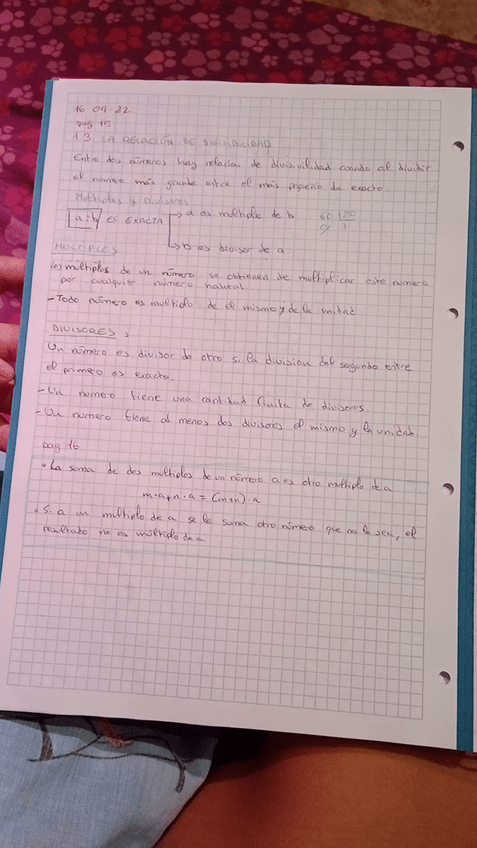 16 09 22
pag 15
1.3 LA RELACIÓN DE DIVISIBILIDAD
Entre dos números hay relacion de divisivilidad cuando al dividir
el numero más grande entre el más pequeño da exacto
Multiplos y Divisores
a:b es EXACTA → a es multiplo de b 60 20
→ b es divisor de a 0 3
MÚLTIPLES
Los múltiplos de un número se obtienen de multiplicar este numero
por cualquier numero natural
- Todo número es multiplo de el mismo y de la unidad
DIVISORES
Un número es divisor de otro si la division del segundo entre
el primero es exacta.
- Un numero tiene una cantidad finita de divisores
- Un numero tiene al menos dos divisores el mismo y la unidad.
pag 16
• La suma de dos multiplos de un número a es otro multiplo de a
m·a+n·a=(m+n)·a
• Si a un multiplo de a se le suma otro número que no lo sea, el
resultado no es múltiplo de a